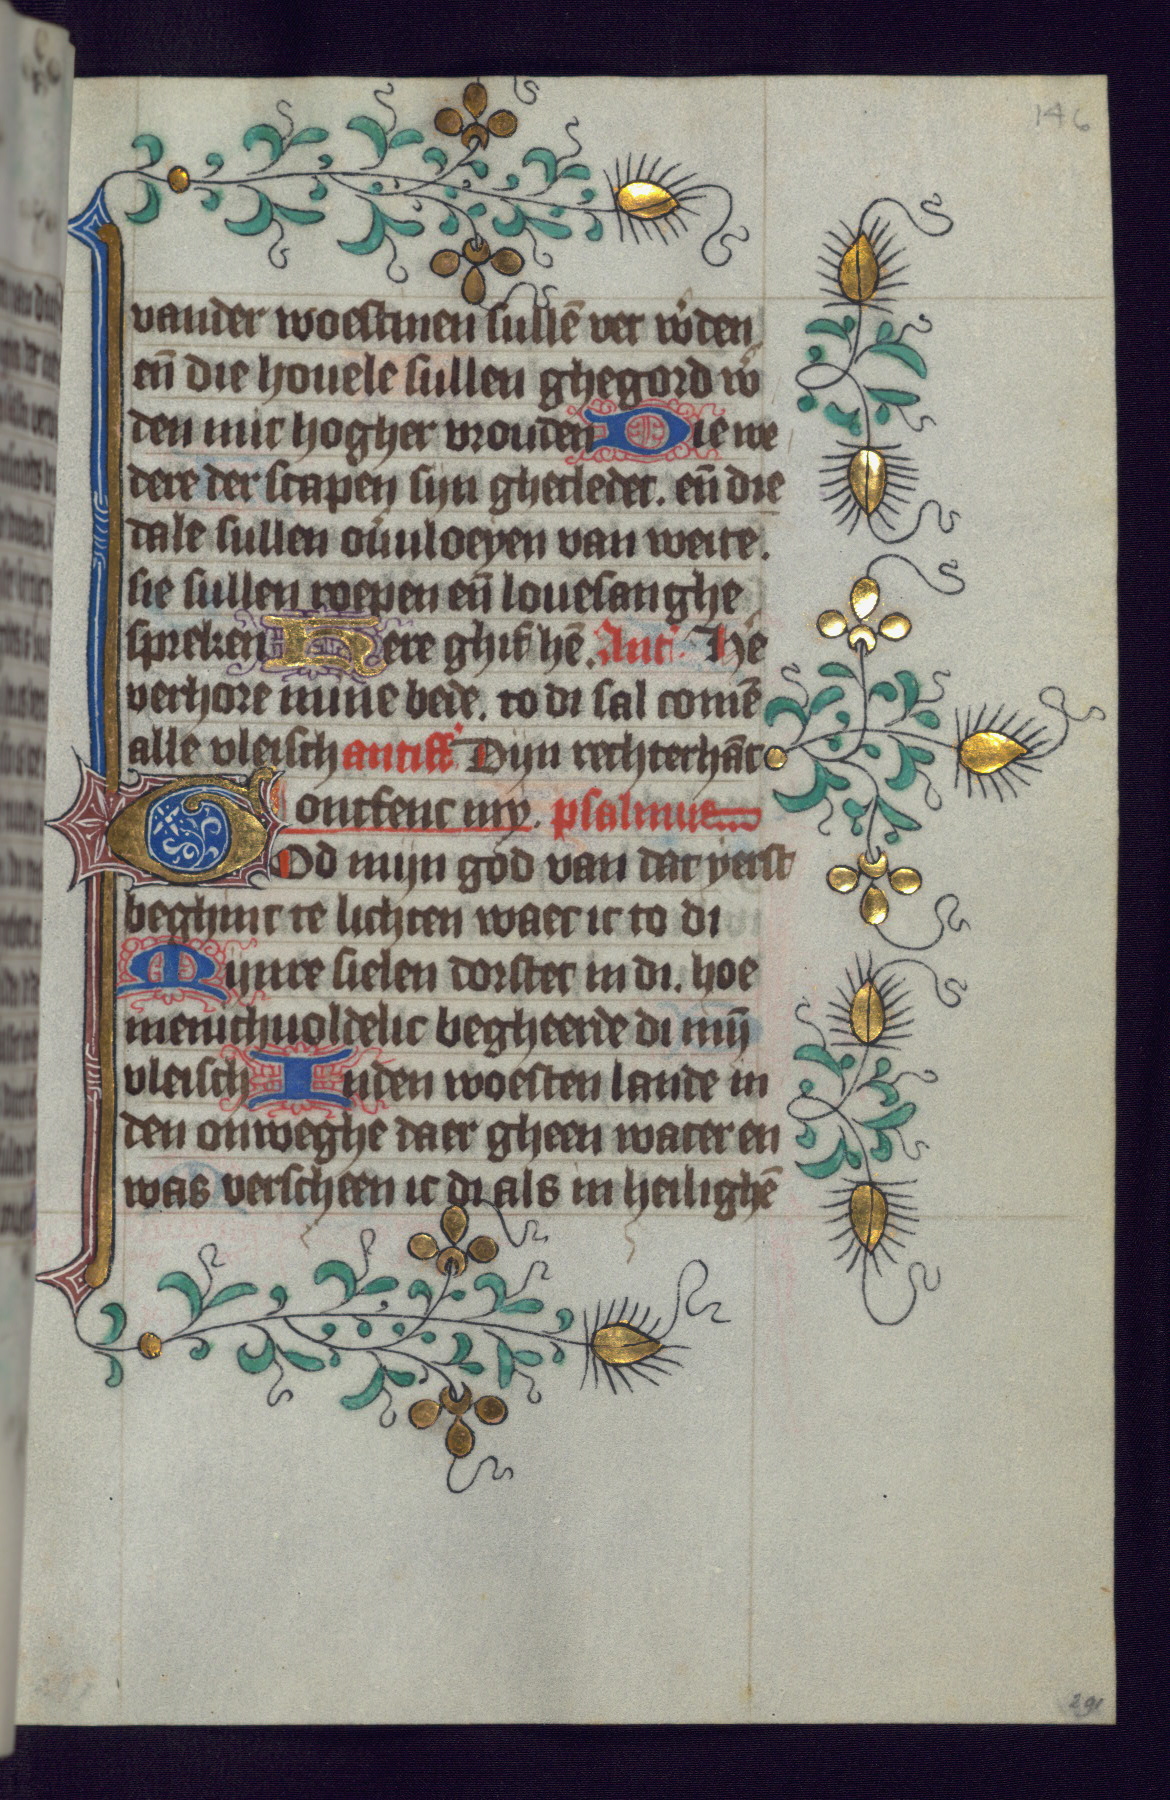 146
vander woestinen sullē vet w̓den
eñ die houele sullen ghegord w̓
den mit hogher vrouden Die we
dere der scapen sijn ghecledet. eñ die
dale sullen ou̓uloeyen van weite.
sie sullen roepen eñ louesanghe
spreken Here ghif hē. Ant̄ Hē
verhore mine bede. to di sal comē
alle vleisch antiff̄ Dijn rechterhāt
ontfenc my. psalmus
God mijn god van dat yerst
beghint te lichten waec ic to di
Mijnre sielen dorstet in di. hoe
menichuoldelic begheerde di mijn̄
vleisch Inden woesten lande in
den onweghe daer gheen water en
was verscheen ic di als in heilighē
291